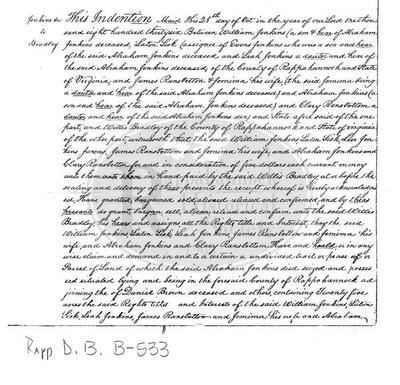 Jenkins &c This Indention Made This 28th day of Oct. in the year of our Lord one thou
to sand eight hundred thirtysix Between William Jenkins (a son & hear of Abraham
Bradley Jenkins deceased, Laten Sisk (assignee of Evons Jenkins who was a son and hear
of the said Abraham Jenkins deceased and Leah Jenkins a dauter and hear of
the said Abraham Jenkins deceased, of the County of Rappahannock and State
of Virginia, and James Ransbotton & Jemima his wife, (the said Jemima being
a dauter and hear of the said Abraham Jenkins deceased) and Abraham Jenkins (a
son and hear of the said Abraham Jenkins deceased) and Clary Ransbottom a
dauter and hear of the said Abraham Jenkins and State afre said of the one
part, and Willis Bradley of the County of Rappahannock and State of virginia
of the other part, witnesseth that the said William Jenkins Laten Sisk, Leah Jen
kins James, James Ransbottom and Jemima his wife, and Abraham Jenkins and
Clary Ransbottom for and in consideration of five dollars each current money
unto them in hand paid by the said Willis Bradley, at or before the
sealing and delivery of these presents the receipt whereof is hereby acknowledg
ed, Have granted, bargained sold, aliened released and confirmed, and by these
presents do grant, bargain, sell, alien, release and confirm unto the said Willis
Bradley, his hears and assigns all the Right, title and Interest, they the said
William Jenkins Laten Sisk, Leah Jenkins, James Ransbottom and Jemima his
wife, and Abraham Jenkins and Clary Ransbottom, Have and or in any
wise claim and demand in and to a certain a undivided tract or peace of or
Parcel of Land of which the said Abraham Jenkins died seized and posses
sed situated lying and being in the foresaid County of Rappahannock ad
joining the of Daniel Brown deceased and others, containing Twenty five
acres the said Right title and Interests of the said William Jenkins, Laten
Sisk, Leah Jenkins, James Ransbottom and Jemima his wife and Abraham
Rapp D. B. B-533